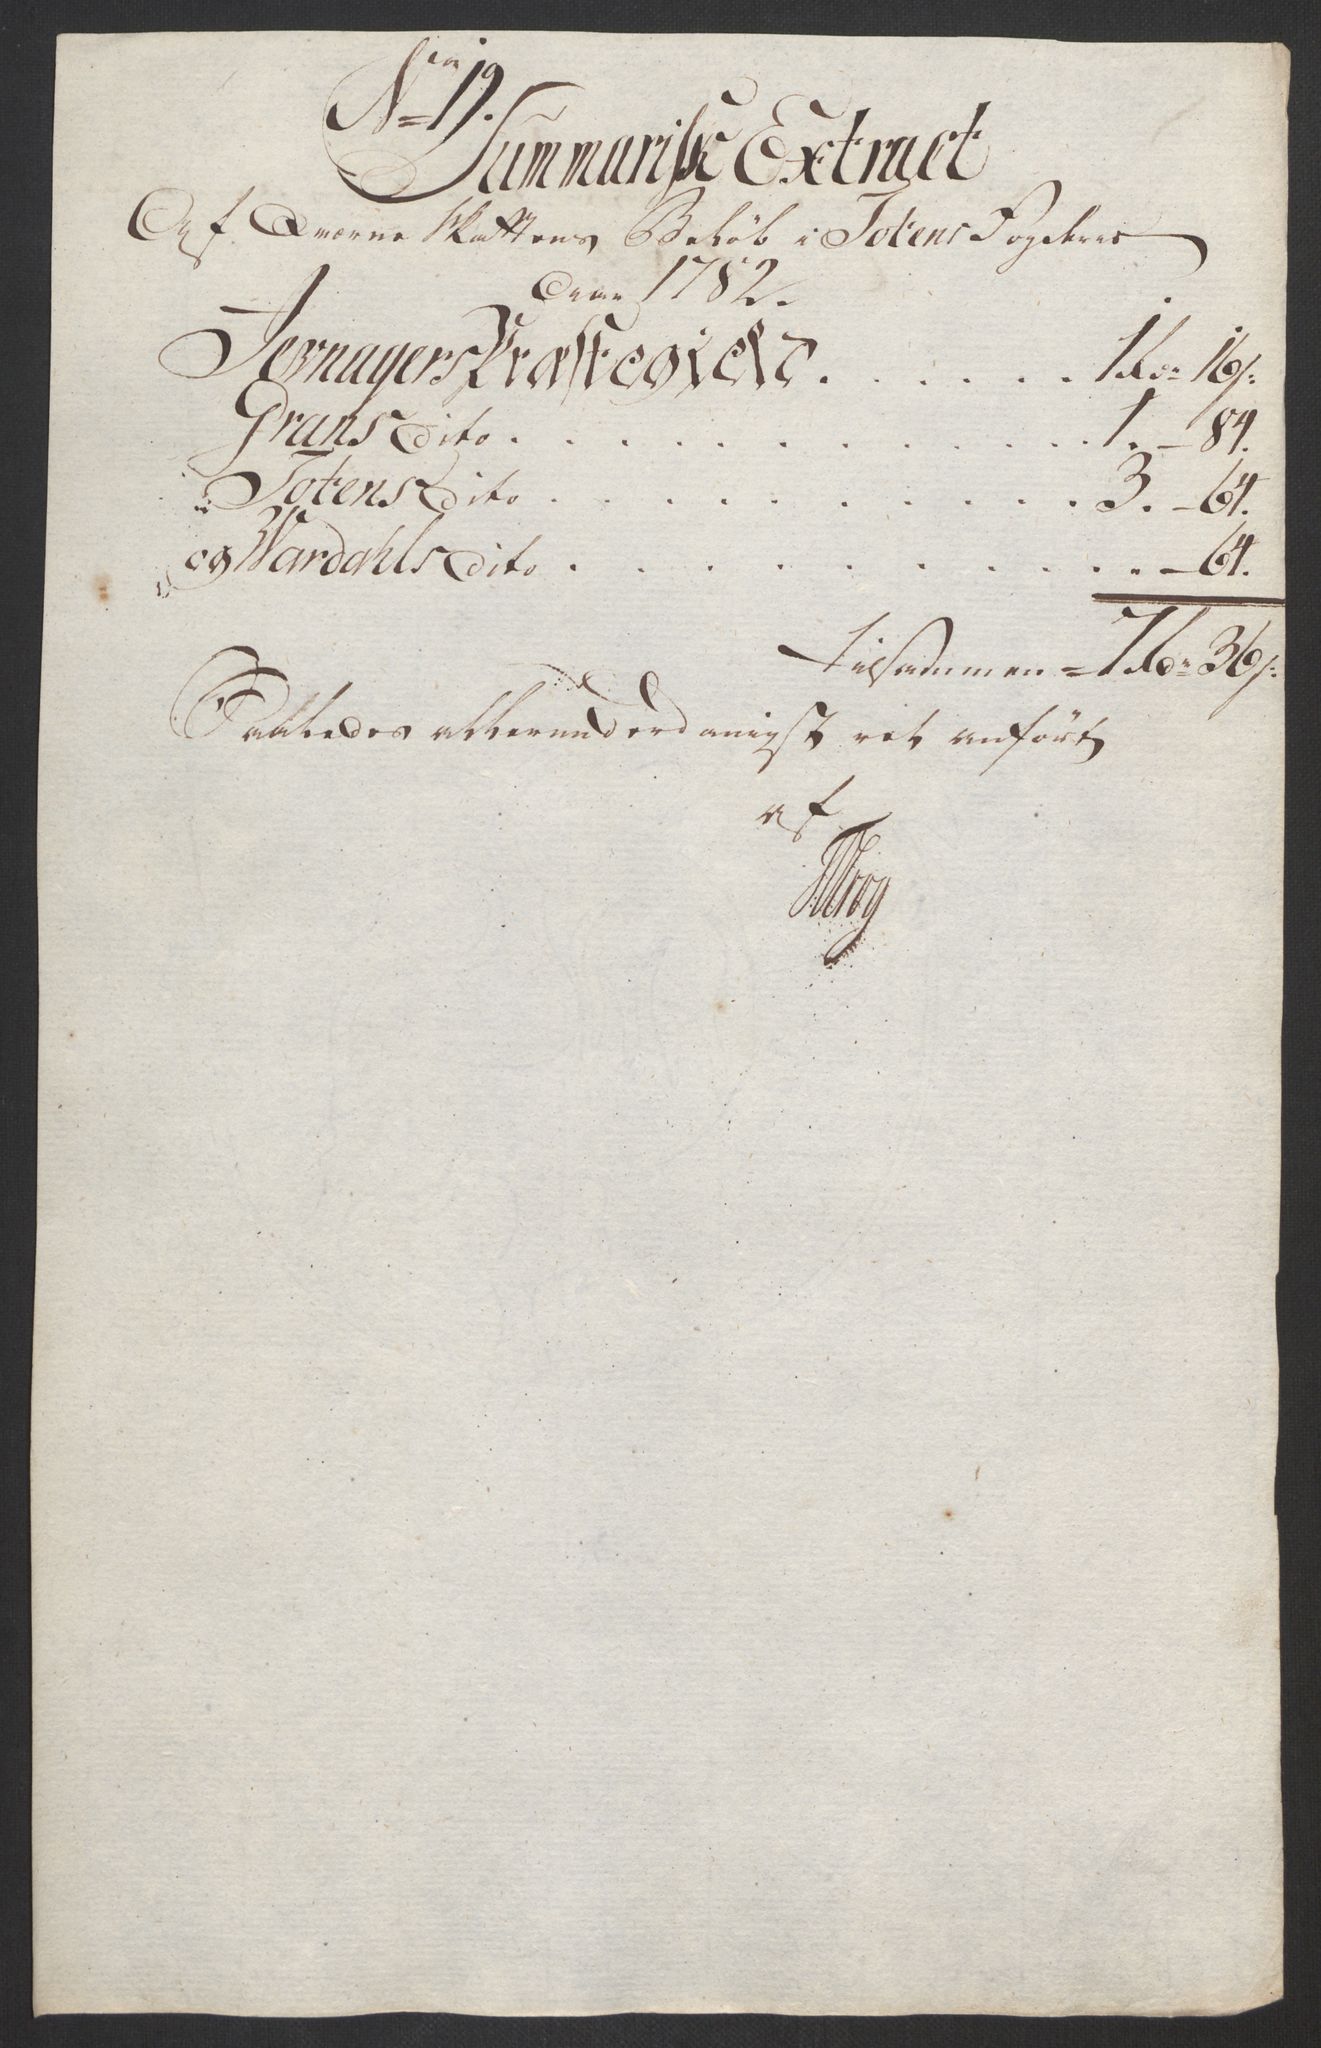 No 19.
Summarisk Extract
Af Qværne Skattens Beløb i Totens Fogderie
Anno 1782.
Jevnagers Præstegield . . . . . . 1 Rdr 16 s:
Grans Dito . . . . . . . . . . . . 1. – 84.
Totens Dito . . . . . . . . . . . 3. – 64.
og Wardahls Dito . . . . . . . . . . – 64.
Tilsammen = 7 Rdr 36 s:
Saaledes allerunderdanigst ret anført
af